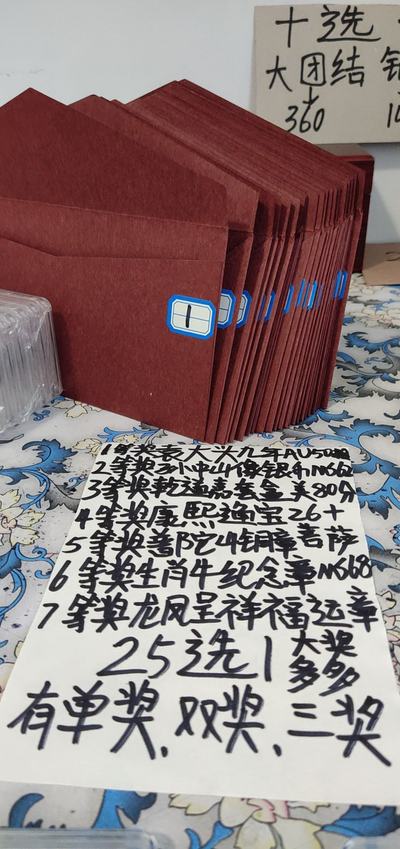 十选
大团结
360
1
1等奖袁大头九年AU50
2等奖孙中山像银币MS62
3等奖乾通嘉套盒美80分
4等奖康熙通宝26+
5等奖普陀山铜章菩萨
6等奖生肖牛纪念章MS68
7等奖龙凤呈祥福运章
25选1 大奖
多多
有单奖,双奖,三奖